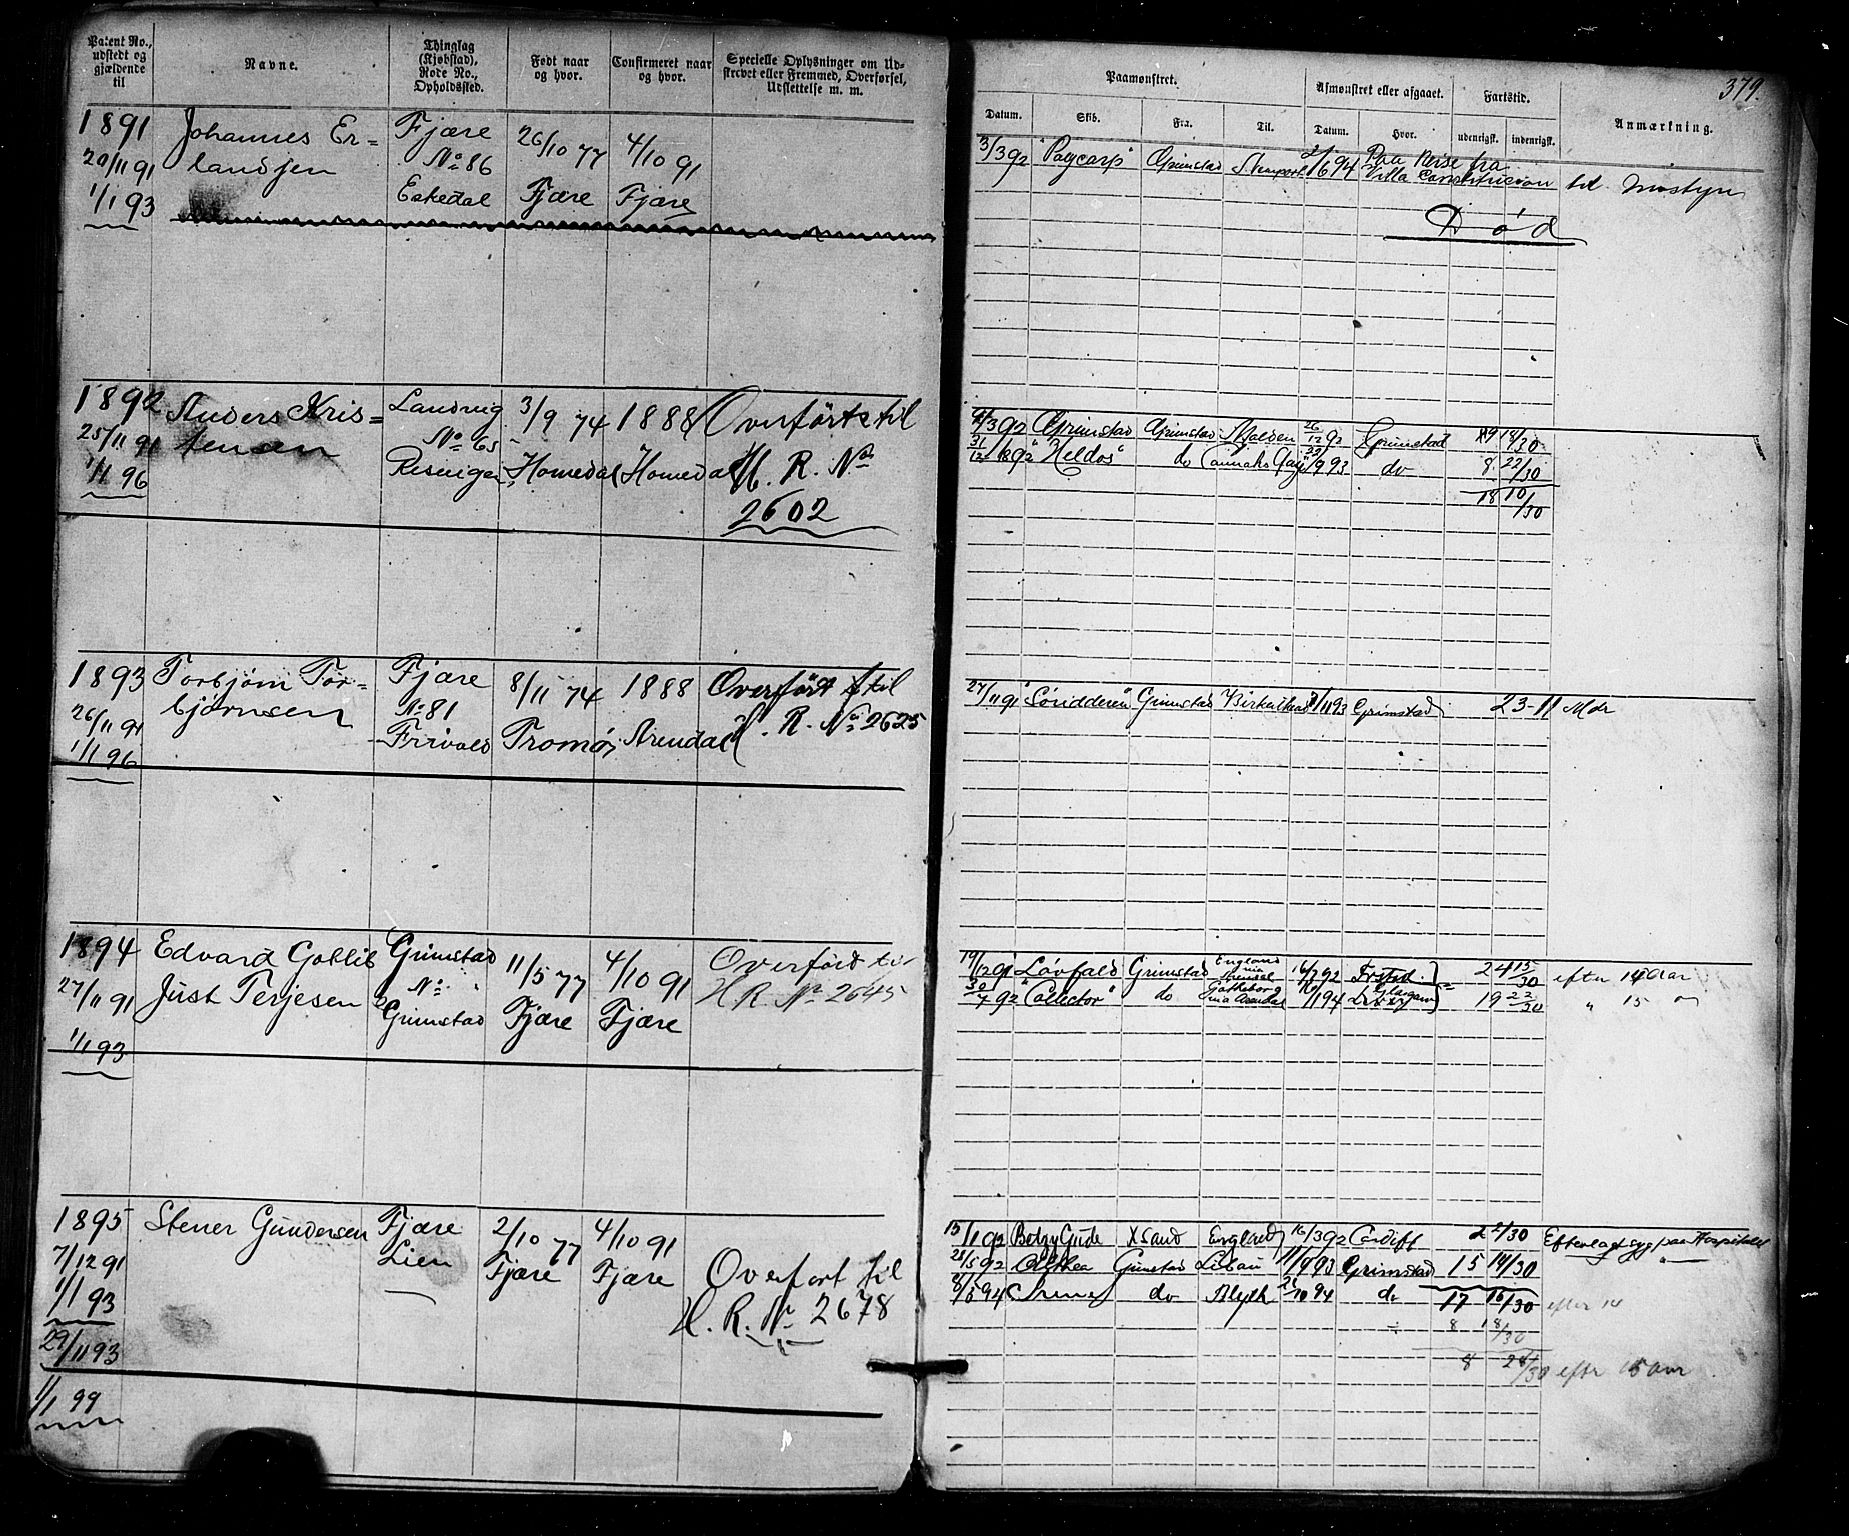 Patent No., udstedt og gjældende til
Navne.
Thinglag (Kjøbstad), Rode No., Opholdssted.
Født naar og hvor.
Confirmeret naar og hvor.
Specielle Oplysninger om Udskrevet eller Fremmed, Overførsel, Udslettelse m. m.
Paamønstret.
Afmønstret eller afgaaet.
Fartstid.
Anmærkning.
379.
Datum. Skib. Fra. Til. Datum. Hvor. udenrigsk. indenrigsk.
1891 Johannes Er= Fjære 26/10 77 4/10 91
20/11 91 landsen No 86
1/1 93 Eskedal Fjære Fjære
3/3 92 "Polycarp" Grimstad 1/6 94 Paa Reise fra
Villa Constitucion til Mostyn
Død
1892 Anders Kris= Landvig 3/9 74 1888 Overførts til
25/11 91 tensen No 65
1/1 96 Resvigen Homedal Homedal H. R. No
2602
3 92 Grimstad Grimstad Malden 26/12 92 Grimstad 9 18/30
31/12 92 "Heldos" do 22/9 93 do 8 22/30
18 10/30
1893 Torbjørn Tor= Fjære 8/11 74 1888 Overført til
26/11 91 bjørnsen No 81 H. R. No 2625
1/1 96 Frivold Tromø Arendal
27/11 91 Grimstad Birkenhead 11 93 Grimstad 23-11 Mdr
1894 Edvard Gotlib Grimstad 11/5 77 4/10 91 Overført til
27/11 91 Just Terjesen No " H R. No 2645
Grimstad Fjære Fjære
1/1 93
19/12 91 Løvfald Grimstad England via Arendal 92 24 15/30 efter 14 Aar
30/7 92 "Collector" do Gøtheborg via Arendal 1 94 19 22/30 " 15 "
1895 Stener Gundersen Fjære 2/10 77 4/10 91
7/12 91 Lien Fjære Fjære Overført til
1/1 93 H. R. No 2678
29/11 93
1/1 99
13/1 92 Betzy Gude X Sand England 16/3 92 Cardiff 2 2/30 Efterlagt syg paa Hospitalet
28/5 92 Althea Grimstad Libau 11/9 93 Grimstad 15 14/30 "
8/5 94 Irene do Blyth 10 94 do 17 16/30 efter 14
8 18/30
8 28/30 efter 15 Aar